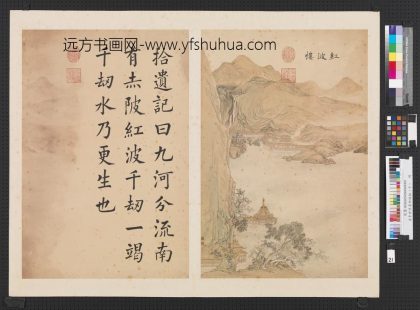 远方书画网-www.yfshuhua.com
紅波樓
拾遺記曰九河分流南
有赤陂紅波千劫一竭
千劫水乃更生也